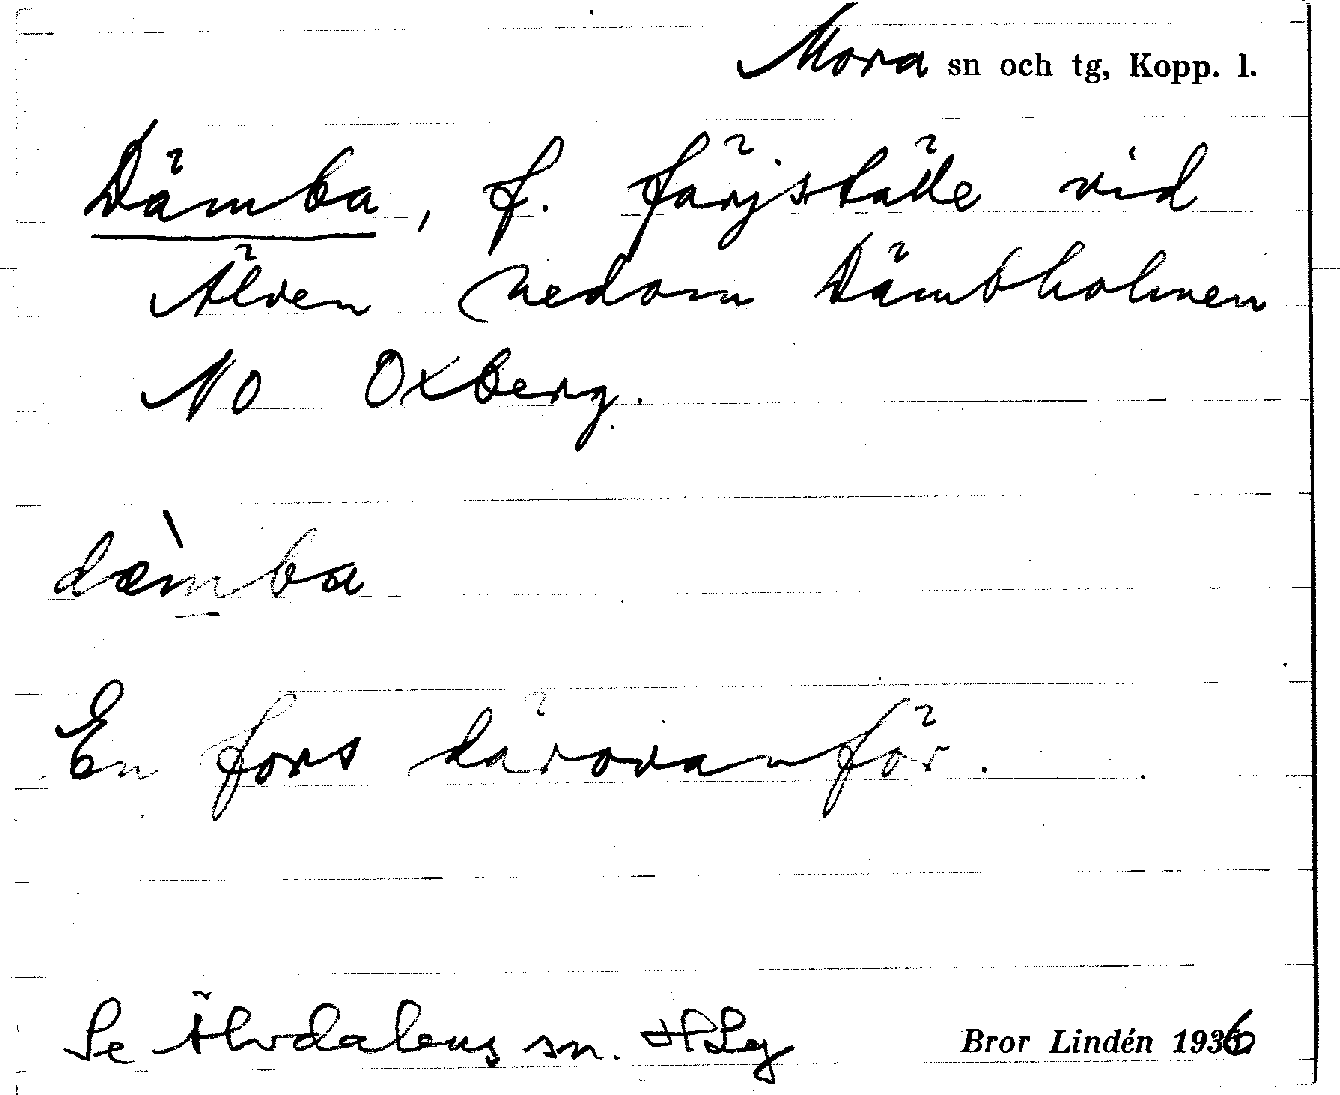 Mora sn och tg, Kopp. l.
Dämba, f. färjställe vid
Älven nedom Dämbholmen
NO Oxberg.
dæ̀mba
En fors därovanför.
Se Älvdalens sn. HLg
Bror Lindén 1936